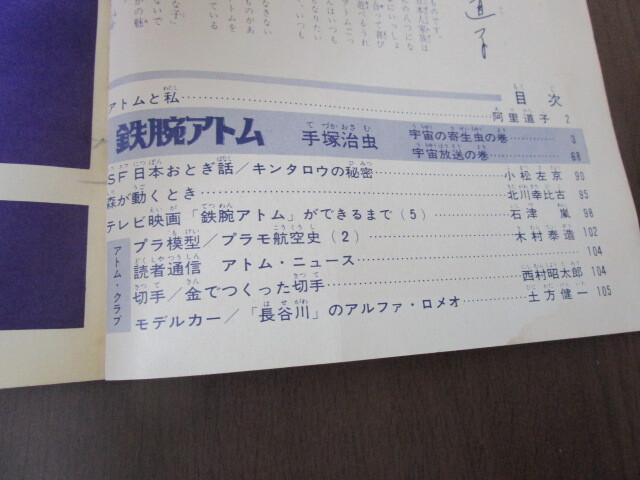 道子
目次
アトムと私……阿里道子 2
鉄腕アトム 手塚治虫 宇宙の寄生虫の巻…… 3
宇宙放送の巻…… 68
SF日本おとぎ話/キンタロウの秘密……小松左京 90
森が動くとき……北川幸比古 95
テレビ映画「鉄腕アトム」ができるまで(5)……石津嵐 98
アトム・クラブ
プラ模型/プラモ航空史(2)……木村泰造 102
読者通信 アトム・ニュース…… 104
切手/金でつくった切手……西村昭太郎 104
モデルカー/「長谷川」のアルファ・ロメオ……土方健一 105